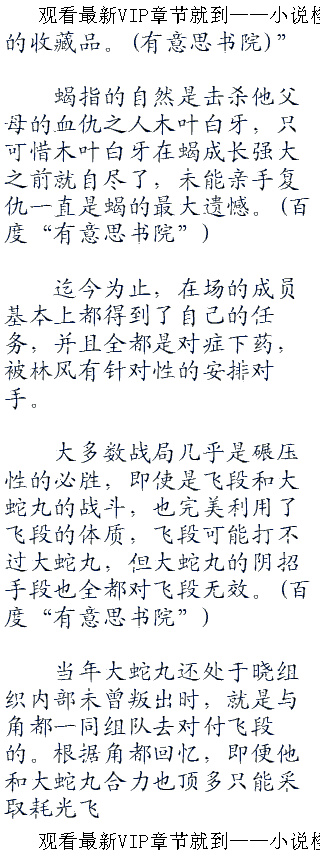 观看最新VIP章节就到——小说
的收藏品。(有意思书院)”
蝎指的自然是击杀他父
母的血仇之人木叶白牙，只
可惜木叶白牙在蝎成长强大
之前就自尽了，未能亲手复
仇一直是蝎的最大遗憾。(百
度“有意思书院”)
迄今为止，在场的成员
基本上都得到了自己的任
务，并且全都是对症下药，
被林风有针对性的安排对
手。
大多数战局几乎是碾压
性的必胜，即使是飞段和大
蛇丸的战斗，也完美利用了
飞段的体质，飞段可能打不
过大蛇丸，但大蛇丸的阴招
手段也全都对飞段无效。(百
度“有意思书院”)
当年大蛇丸还处于晓组
织内部未曾叛出时，就是与
角都一同组队去对付飞段
的。根据角都回忆，即便他
和大蛇丸合力也顶多只能采
取耗光飞
观看最新VIP章节就到——小说